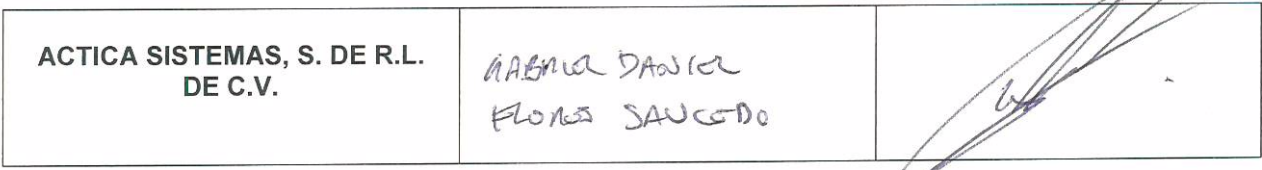 ACTICA SISTEMAS, S. DE R.L.
DE C.V.
GABRIEL DANIEL
FLORES SAUCEDO